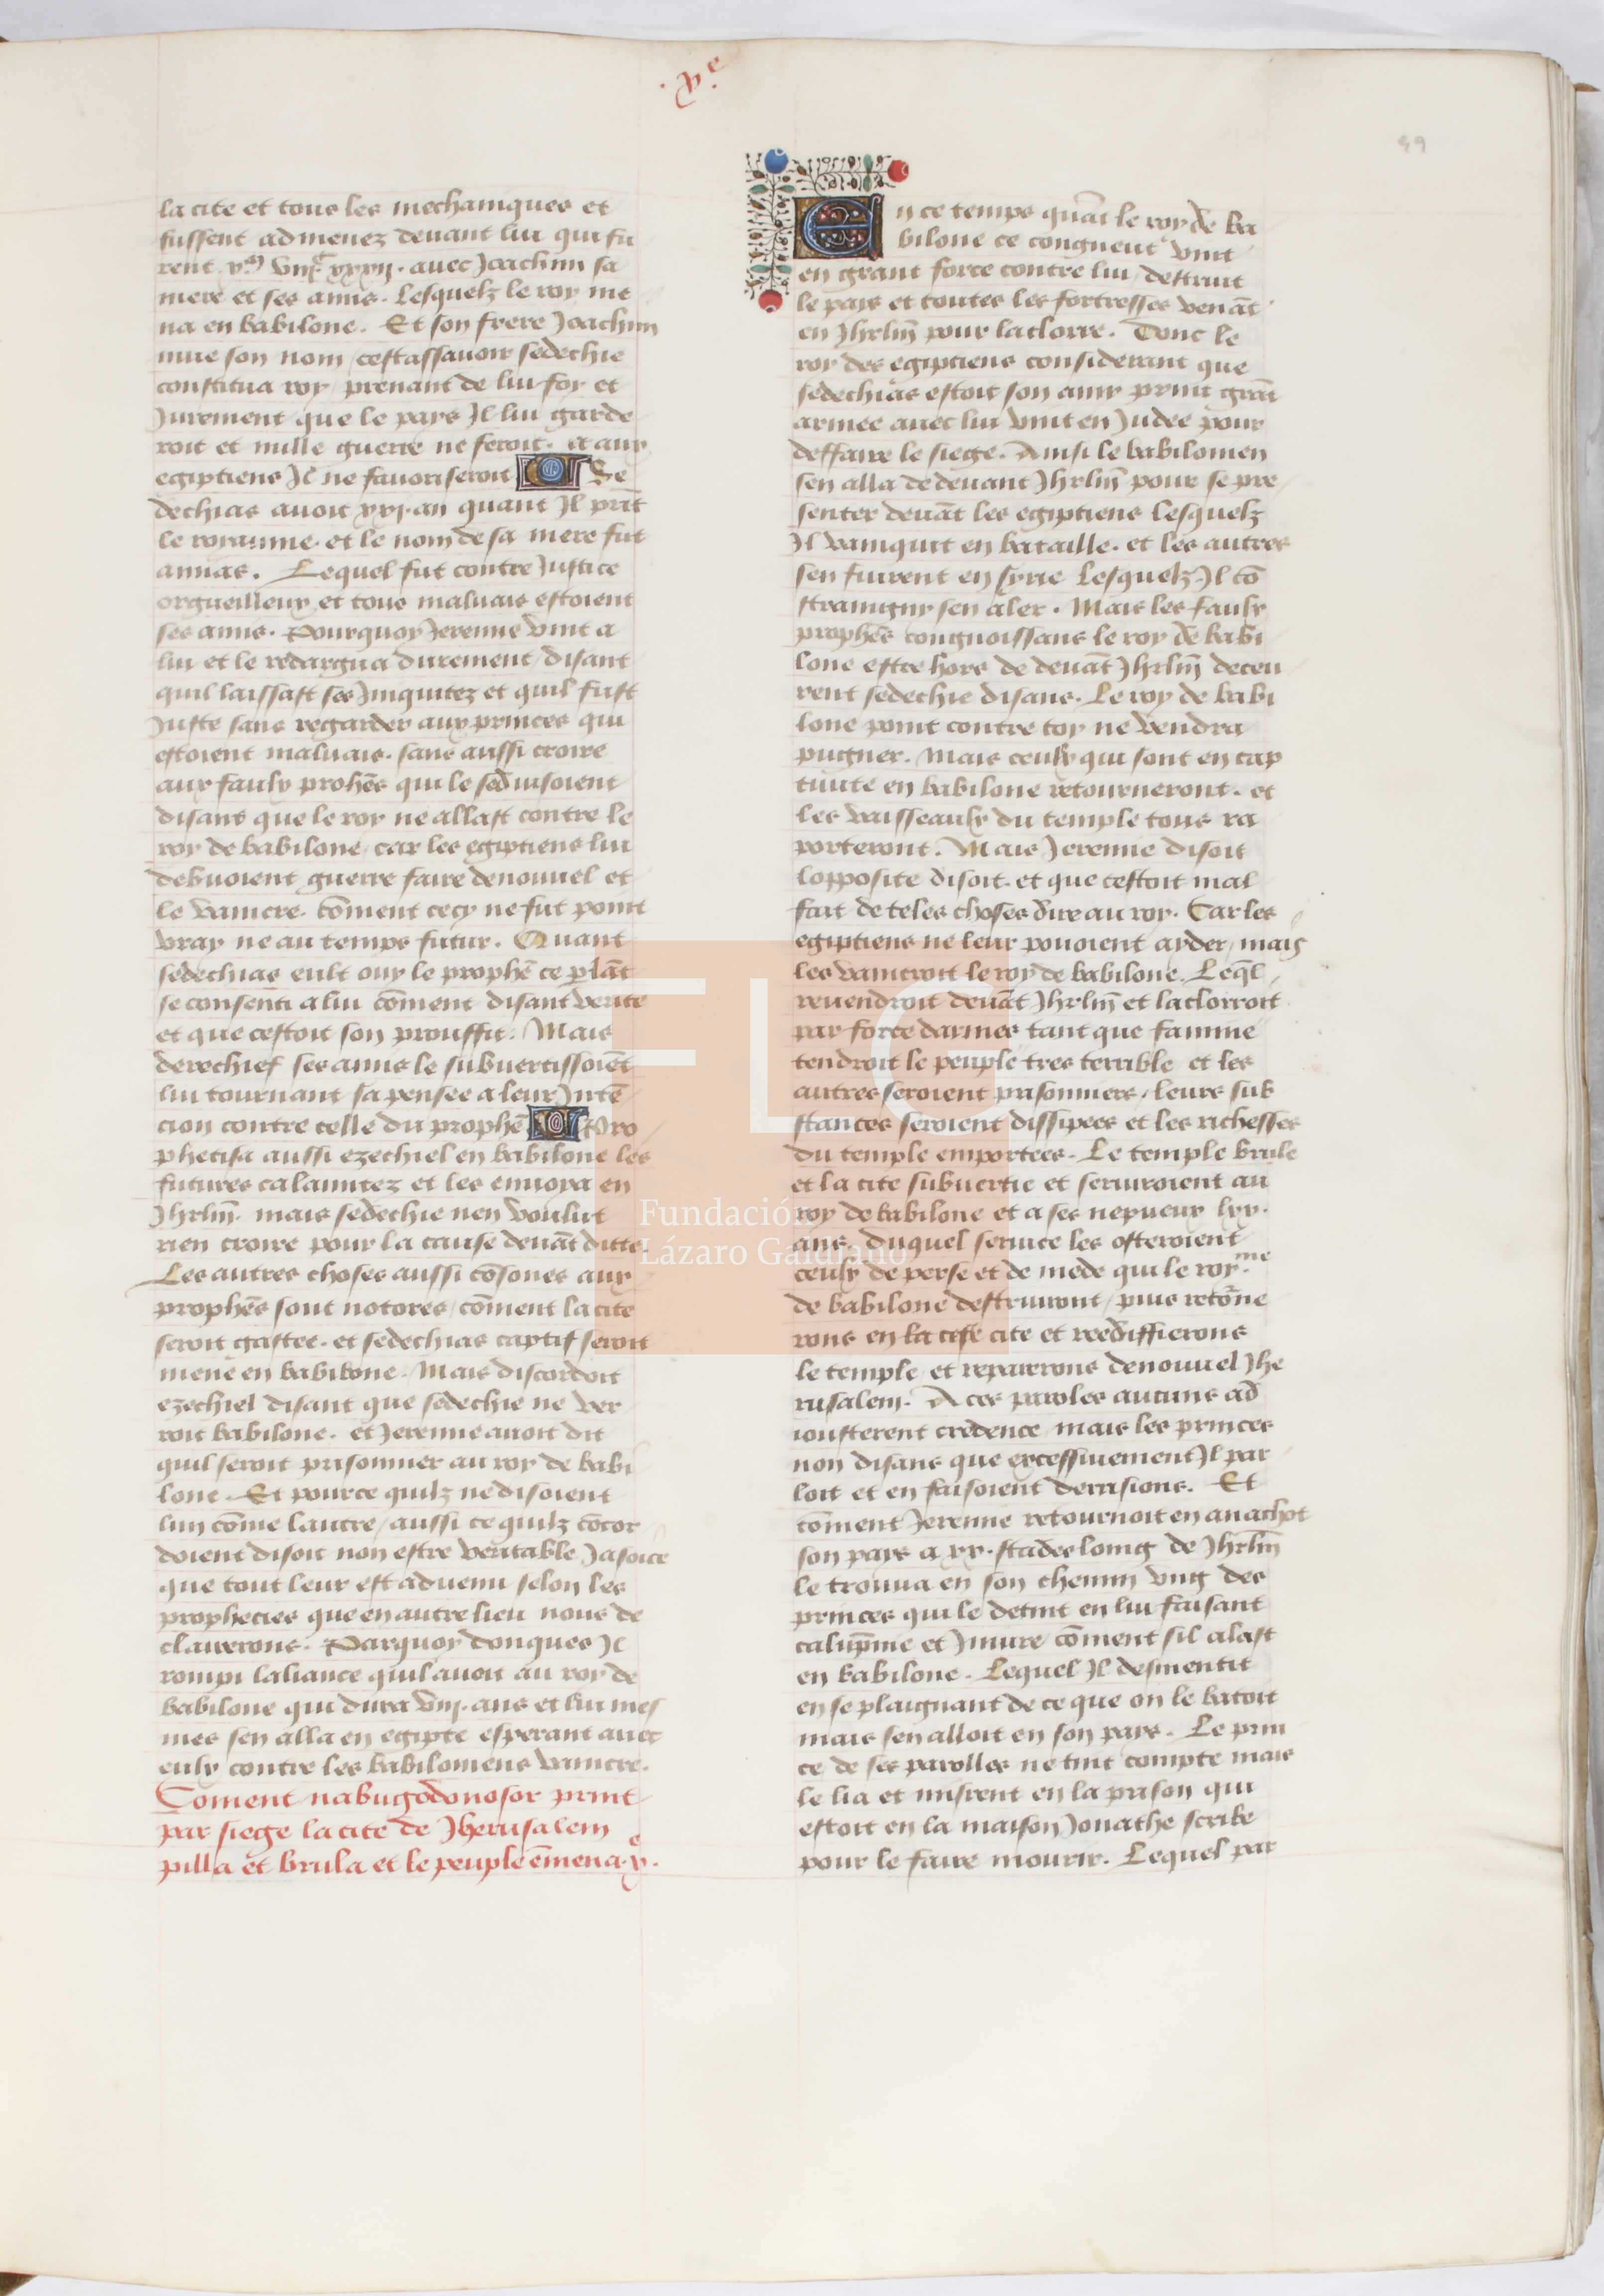 .x.e
99
la cite et tous les mechaniques et
fussent admenez deuant lui qui fu
rent xm viijc xxxij. auec Joachim sa
mere et ses amis. Lesquelz le roy me
na en babilone. Et son frere Joachim
mue son nom cestassauoir sedechie
constitua roy prenant de lui foy et
Jurement que le pays Il lui garde
roit et nulle guerre ne feroit. et aux
egiptiens Il ne fauoriseroit Se
dechias auoit xxj. an quant Il prit
le royaume. et le nom de sa mere fut
annas. Lequel fut contre Justice
orgueilleux et tous maluais estoient
ses amis. Pourquoy Jeremie vint a
lui et le redargua durement disant
quil laissast ses Iniquitez et quil fust
Juste sans regarder aux princes qui
estoient maluais. sans aussi croire
aux faulx prohēs qui le seduisoient
disans que le roy ne allast contre le
roy de babilone car les egiptiens lui
debuoient guerre faire denouuel et
le vaincre. cōment cecy ne fut point
vray ne au temps futur. Quant
sedechias eult ouy le prophē ce plāt
se consenti a lui cōment disant verite
et que cestoit son prouffit. Mais
derechief ses amis le subuertissoiēt
lui tournant sa pensee a leur Intē
cion contre celle du prophē Pro
phetisa aussi ezechiel en babilone les
futures calamitez et les enuoya en
Jhrlm̄. mais sedechie nen voulut
rien croire pour la cause deuāt ditte.
Les autres choses aussi cōsones aux
prophēs sont notores cōment la cite
seroit gastee. et sedechias captif seroit
mene en babilone. Mais discordoit
ezechiel disant que sedechie ne ver
roit babilone. et Jeremie auoit dit
quil seroit prisonnier au roy de babi
lone. Et pource quilz ne disoient
lun cōme lautre aussi ce quilz cōcor
doient disoit non estre veritable Jasoice
que tout leur est aduenu selon les
prophecies que en autre lieu nous de
clairerons. Parquoy donques Il
rompi laliance quil auoit au roy de
babilone qui dura viij. ans et lui mes
mes sen alla en egipte esperant auec
eulx contre les babiloniens vaincre.
Coment nabugodonosor print
par siege la cite de Jherusalem
pilla et brula et le peuple ēmena. x.e
En ce temps quāt le roy de ba
bilone ce congneut vint
en grant force contre lui destruit
le pays et toutes les fortresses venāt
en Jhrlm̄ pour laclorre. Donc le
roy des egiptiens considerant que
sedechias estoit son amy print grāt
armee auec lui vint en Judee pour
deffaire le siege. Ainsi le babilonien
sen alla dedeuant Jhrlm̄ pour se pre
senter deuāt les egiptiens lesquelz
Il vainquit en bataille. et les autres
sen fuirent en syrie lesquelz Il cō
straingny sen aler. Mais les faulx
prophēs congnoissans le roy de babi
lone estre hors de deuāt Jhrlm̄ deceu
rent sedechie disans. Le roy de babi
lone point contre toy ne vendra
pugner. Mais ceulx qui sont en cap
tiuite en babilone retourneront. et
les vaisseaulx du temple tous ra
porteront. Mais Jeremie disoit
lopposite disoit. et que cestoit mal
fait de teles choses dire au roy. Car les
egiptiens ne leur pouoient ayder mais
les vaincroit le roy de babilone. Leql̄
reuendroit deuāt Jhrlm̄ et laclorroit
par force darmes tant que famine
tendroit le peuple tres terrible et les
autres seroient prisonniers leurs sub
stances seroient dissipees et les richesses
du temple emportees. Le temple brule
et la cite subuertie et seruiroient au
roy de babilone et a ses nepueux lxx.
ans. Duquel seruice les osteroient
ceulx de perse et de mede qui le roy.me
de babilone destruiront puis retōrne
rons en la ditte cite et reediffierons
le temple et reparerons denouuel Jhe
rusalem. A ces paroles aucuns ad
iousterent credence mais les princes
non disans que excessiuement Il par
loit et en faisoient derrisions. Et
cōment Jeremie retournoit en anathot
son pays a xx. stades loing de Jhrlm̄
le trouua en son chemin vng des
princes qui le detint en lui faisant
calūpnie et Iniure cōment sil alast
en babilone. Lequel Il desmentit
en se plaignant de ce que on le batoit
mais sen alloit en son pays. Le prin
ce de ses parolles ne tint compte mais
le lia et misrent en la prison qui
estoit en la maison Jonathe scribe
pour le faire mourir. Lequel par
FLG
Fundación
Lázaro Galdiano